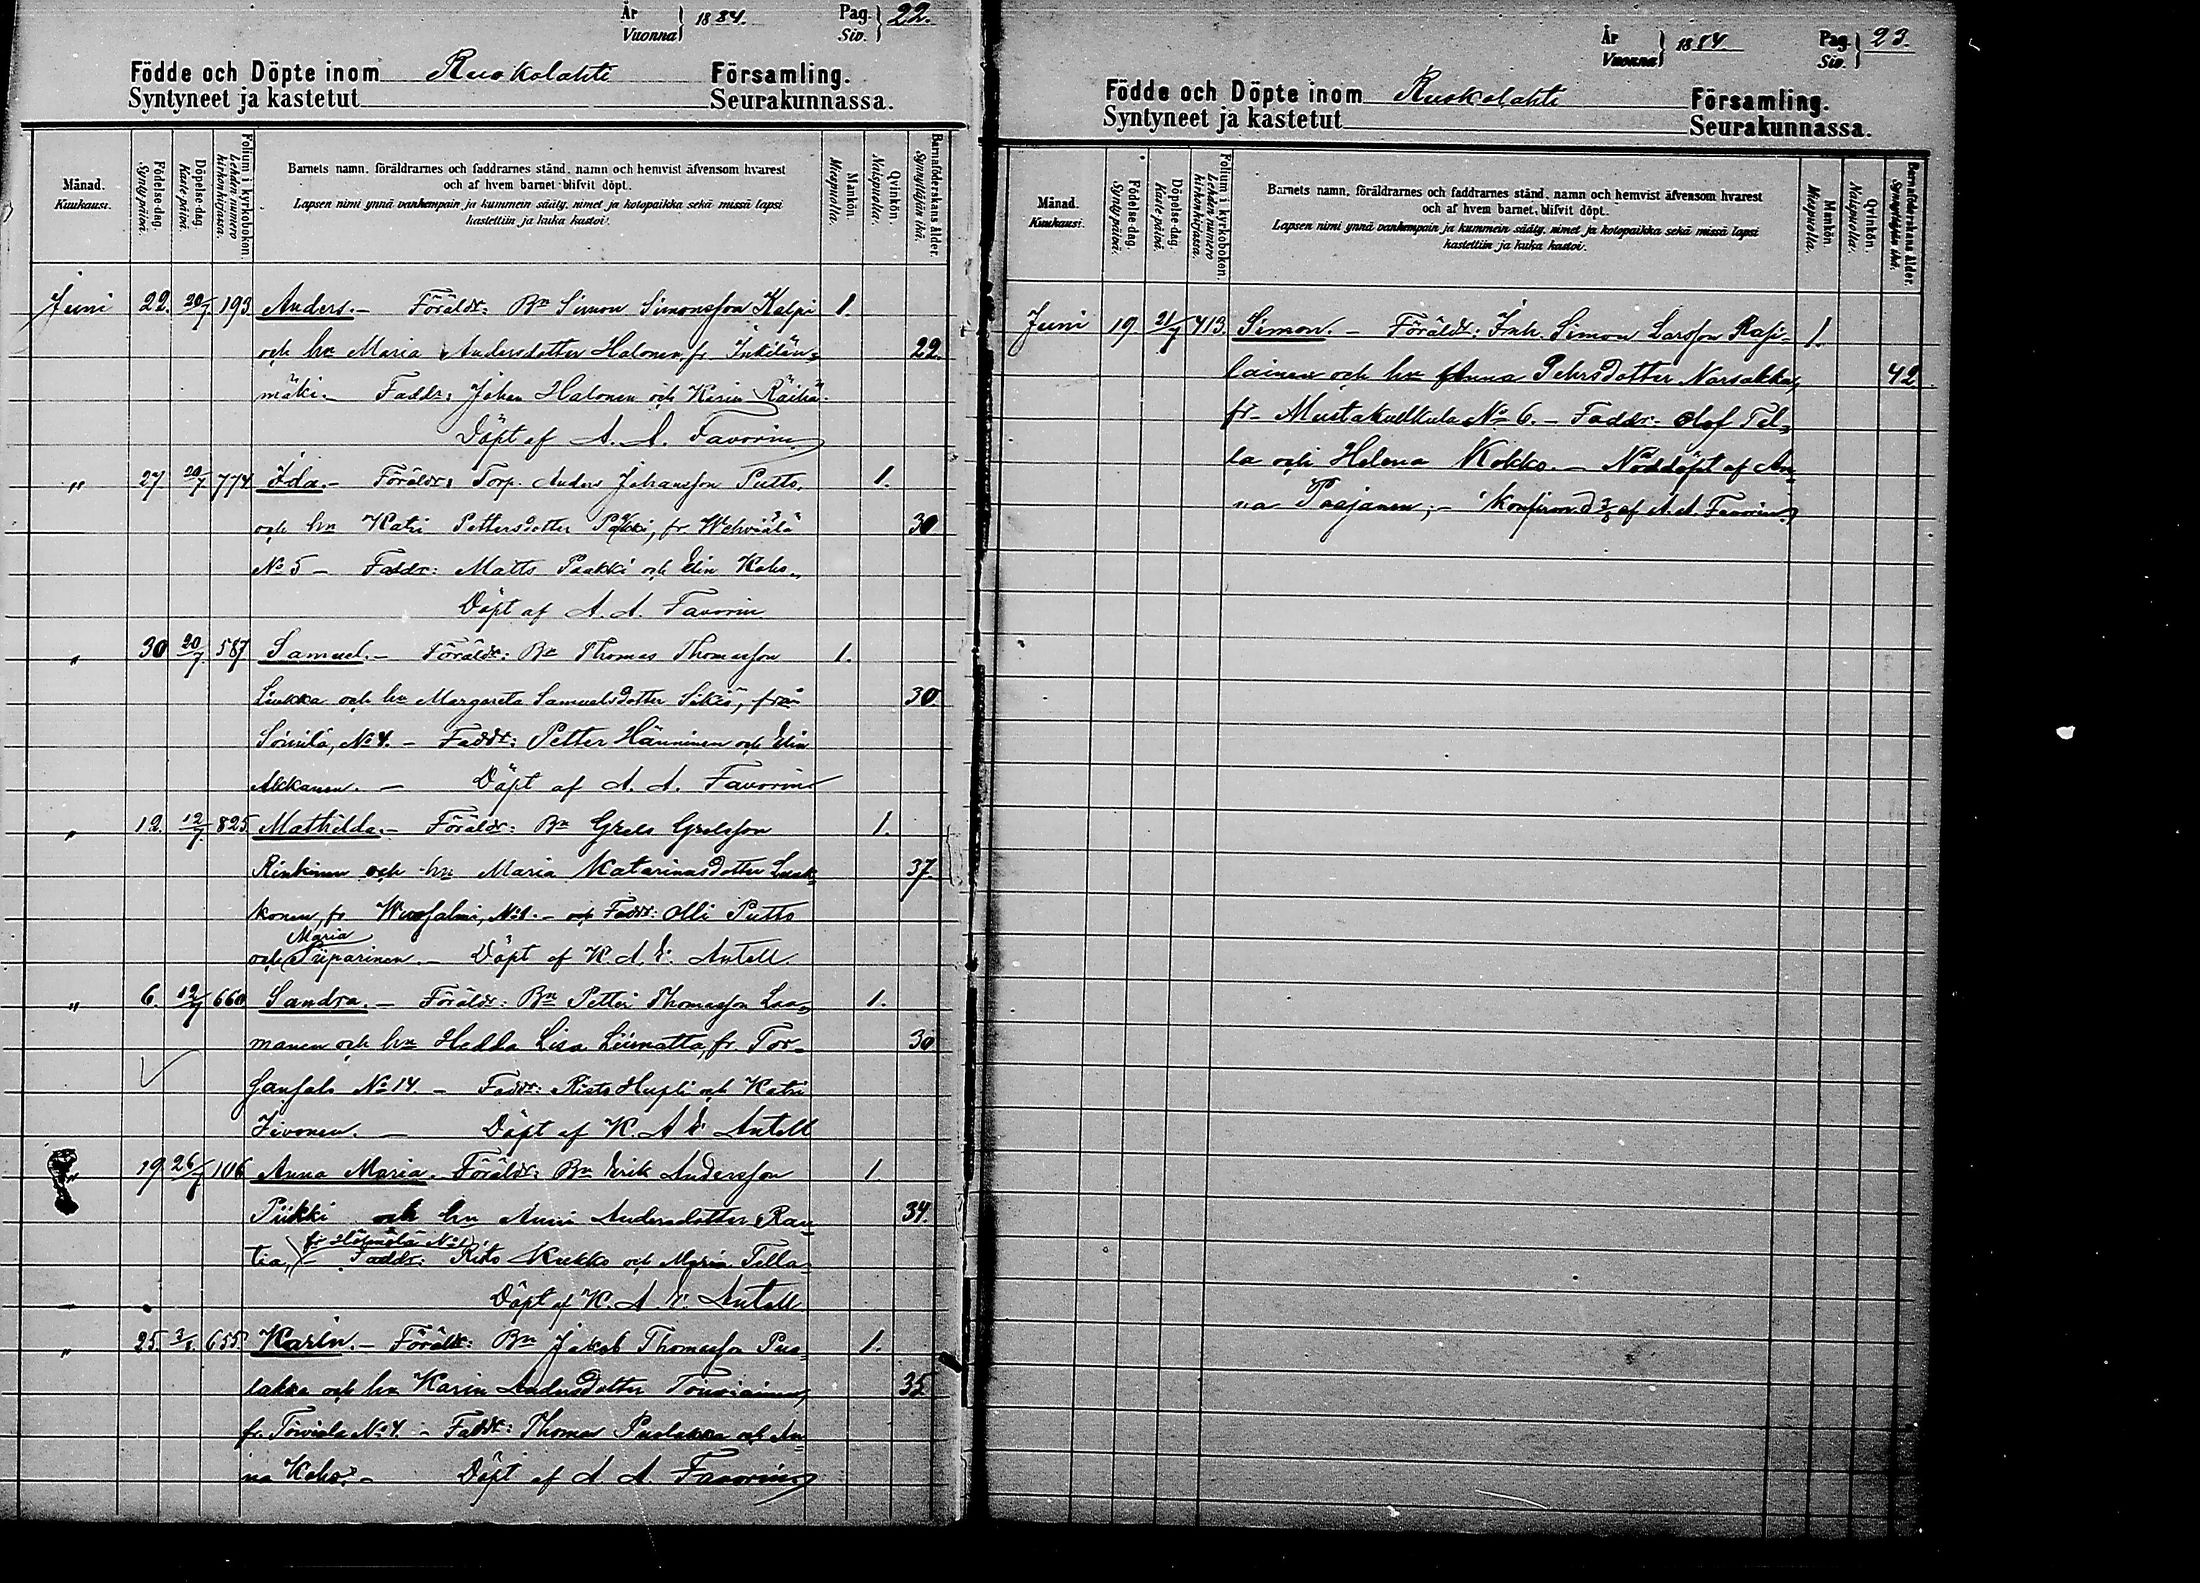 År
Vuonna 1884. Pag. Siv. 22.
Födde och Döpte inom Ruokolahti Församling.
Syntyneet ja kastetut Seurakunnassa.
Månad.
Kuukausi.
Födelse-dag.
Syntypäivä.
Döpelse-dag.
Kastepäivä.
Folium i kyrkoboken.
Lehden numero kirkonkirjassa.
Barnets namn, föräldrarnes och faddrarnes stånd, namn och hemvist äfvensom hvarest
och af hvem barnet blifvit döpt.
Lapsen nimi ynnä vanhempain ja kummein sääty, nimet ja kotopaikka sekä missä lapsi
kastettiin ja kuka kastoi.
Mankön.
Miespuolia.
Qvinkön.
Naispuolia.
Barnaföderskans ålder.
Synnyttäjän ikä.
Juni 22. 20/7. 193 Anders.- Föräldr: Bn Simon Simonsson Kalpi 1.
och hn Maria Andersdotter Halonen, fr Inkilän- 22.
mäki. Faddr: Johan Halonen och Karin Räihä.
Döpt af A. A. Favorin
" 27. 20/7 774 Ida.- Föräldr: Torp. Anders Johansson Putto, 1.
och hn Katri Pettersdotter Pakki, fr Wehviälä 30
No 5 - Faddr: Matts Paakki och Elin Koho.
Döpt af A. A. Favorin
" 30 20/7. 587 Samuel.- Föräldr: Bn Thomas Thomasson 1.
Liukka och hn Margareta Samuelsdotter Sikiö, från 30
No 4. - Faddr: Petter Hänninen och Elin
Akkanen. - Döpt af A. A. Favorin
" 12. 12/7. 825 Mathilda.- Föräldr: Bn Grels Grelsson 1.
Rinkinen och hn Maria Katarinasdotter Luuk- 37.
konen, fr No 1. - och Faddr: Olli Putto
Maria
och Siiparinen. - Döpt af K. A. E. Antell
" 6. 12/7 660 Sandra.- Föräldr: Bn Petter Thomasson Laa- 1.
manen och hn Hedda Lisa Liimatta, fr. Tor- 30
sansalo No 14. - Faddr: Risto Hupli och Katri
Iivonen. - Döpt af K. A. E. Antell
" 19. 26/7 106 Anna Maria. Föräldr: Bn Erik Andersson 1.
Piikki och hn Anni Andersdotter Rau- 34.
fr No 1
tia, - Faddr: Risto Kukko och Maria Tella
Döpt af K. A. E. Antell
" 25. 3/8. 655 Karin.- Föräldr: Bn Jakob Thomasson Puo- 1.
lakka och hn Karin Andersdotter Toiviainen, 35
fr. No 4. - Faddr: Thomas Puolakka och An-
na Koho. - Döpt af A. A. Favorin
År
Vuonna 1884. Pag. Siv. 23.
Födde och Döpte inom Ruokolahti Församling.
Syntyneet ja kastetut Seurakunnassa.
Månad.
Kuukausi.
Födelse-dag.
Syntypäivä.
Döpelse-dag.
Kastepäivä.
Folium i kyrkoboken.
Lehden numero kirkonkirjassa.
Barnets namn, föräldrarnes och faddrarnes stånd, namn och hemvist äfvensom hvarest
och af hvem barnet blifvit döpt.
Lapsen nimi ynnä vanhempain ja kummein sääty, nimet ja kotopaikka sekä missä lapsi
kastettiin ja kuka kastoi.
Mankön
Miespuolia.
Qvinkön.
Naispuolia.
Barnaföderskans ålder.
Synnyttäjän ikä.
Juni 19 21/7 413. Simon. - Föräldr: Inh. Simon Larsson Rasi- 1.
lainen och hn Anna Pehrsdotter Narsakka, 42
fr No 6. - Faddr: Olof Tel-
la och Helena Kokko. - Nöddöpt af An-
na Paajanen; - Konfirm.d 3/8 af A. A. Favorin